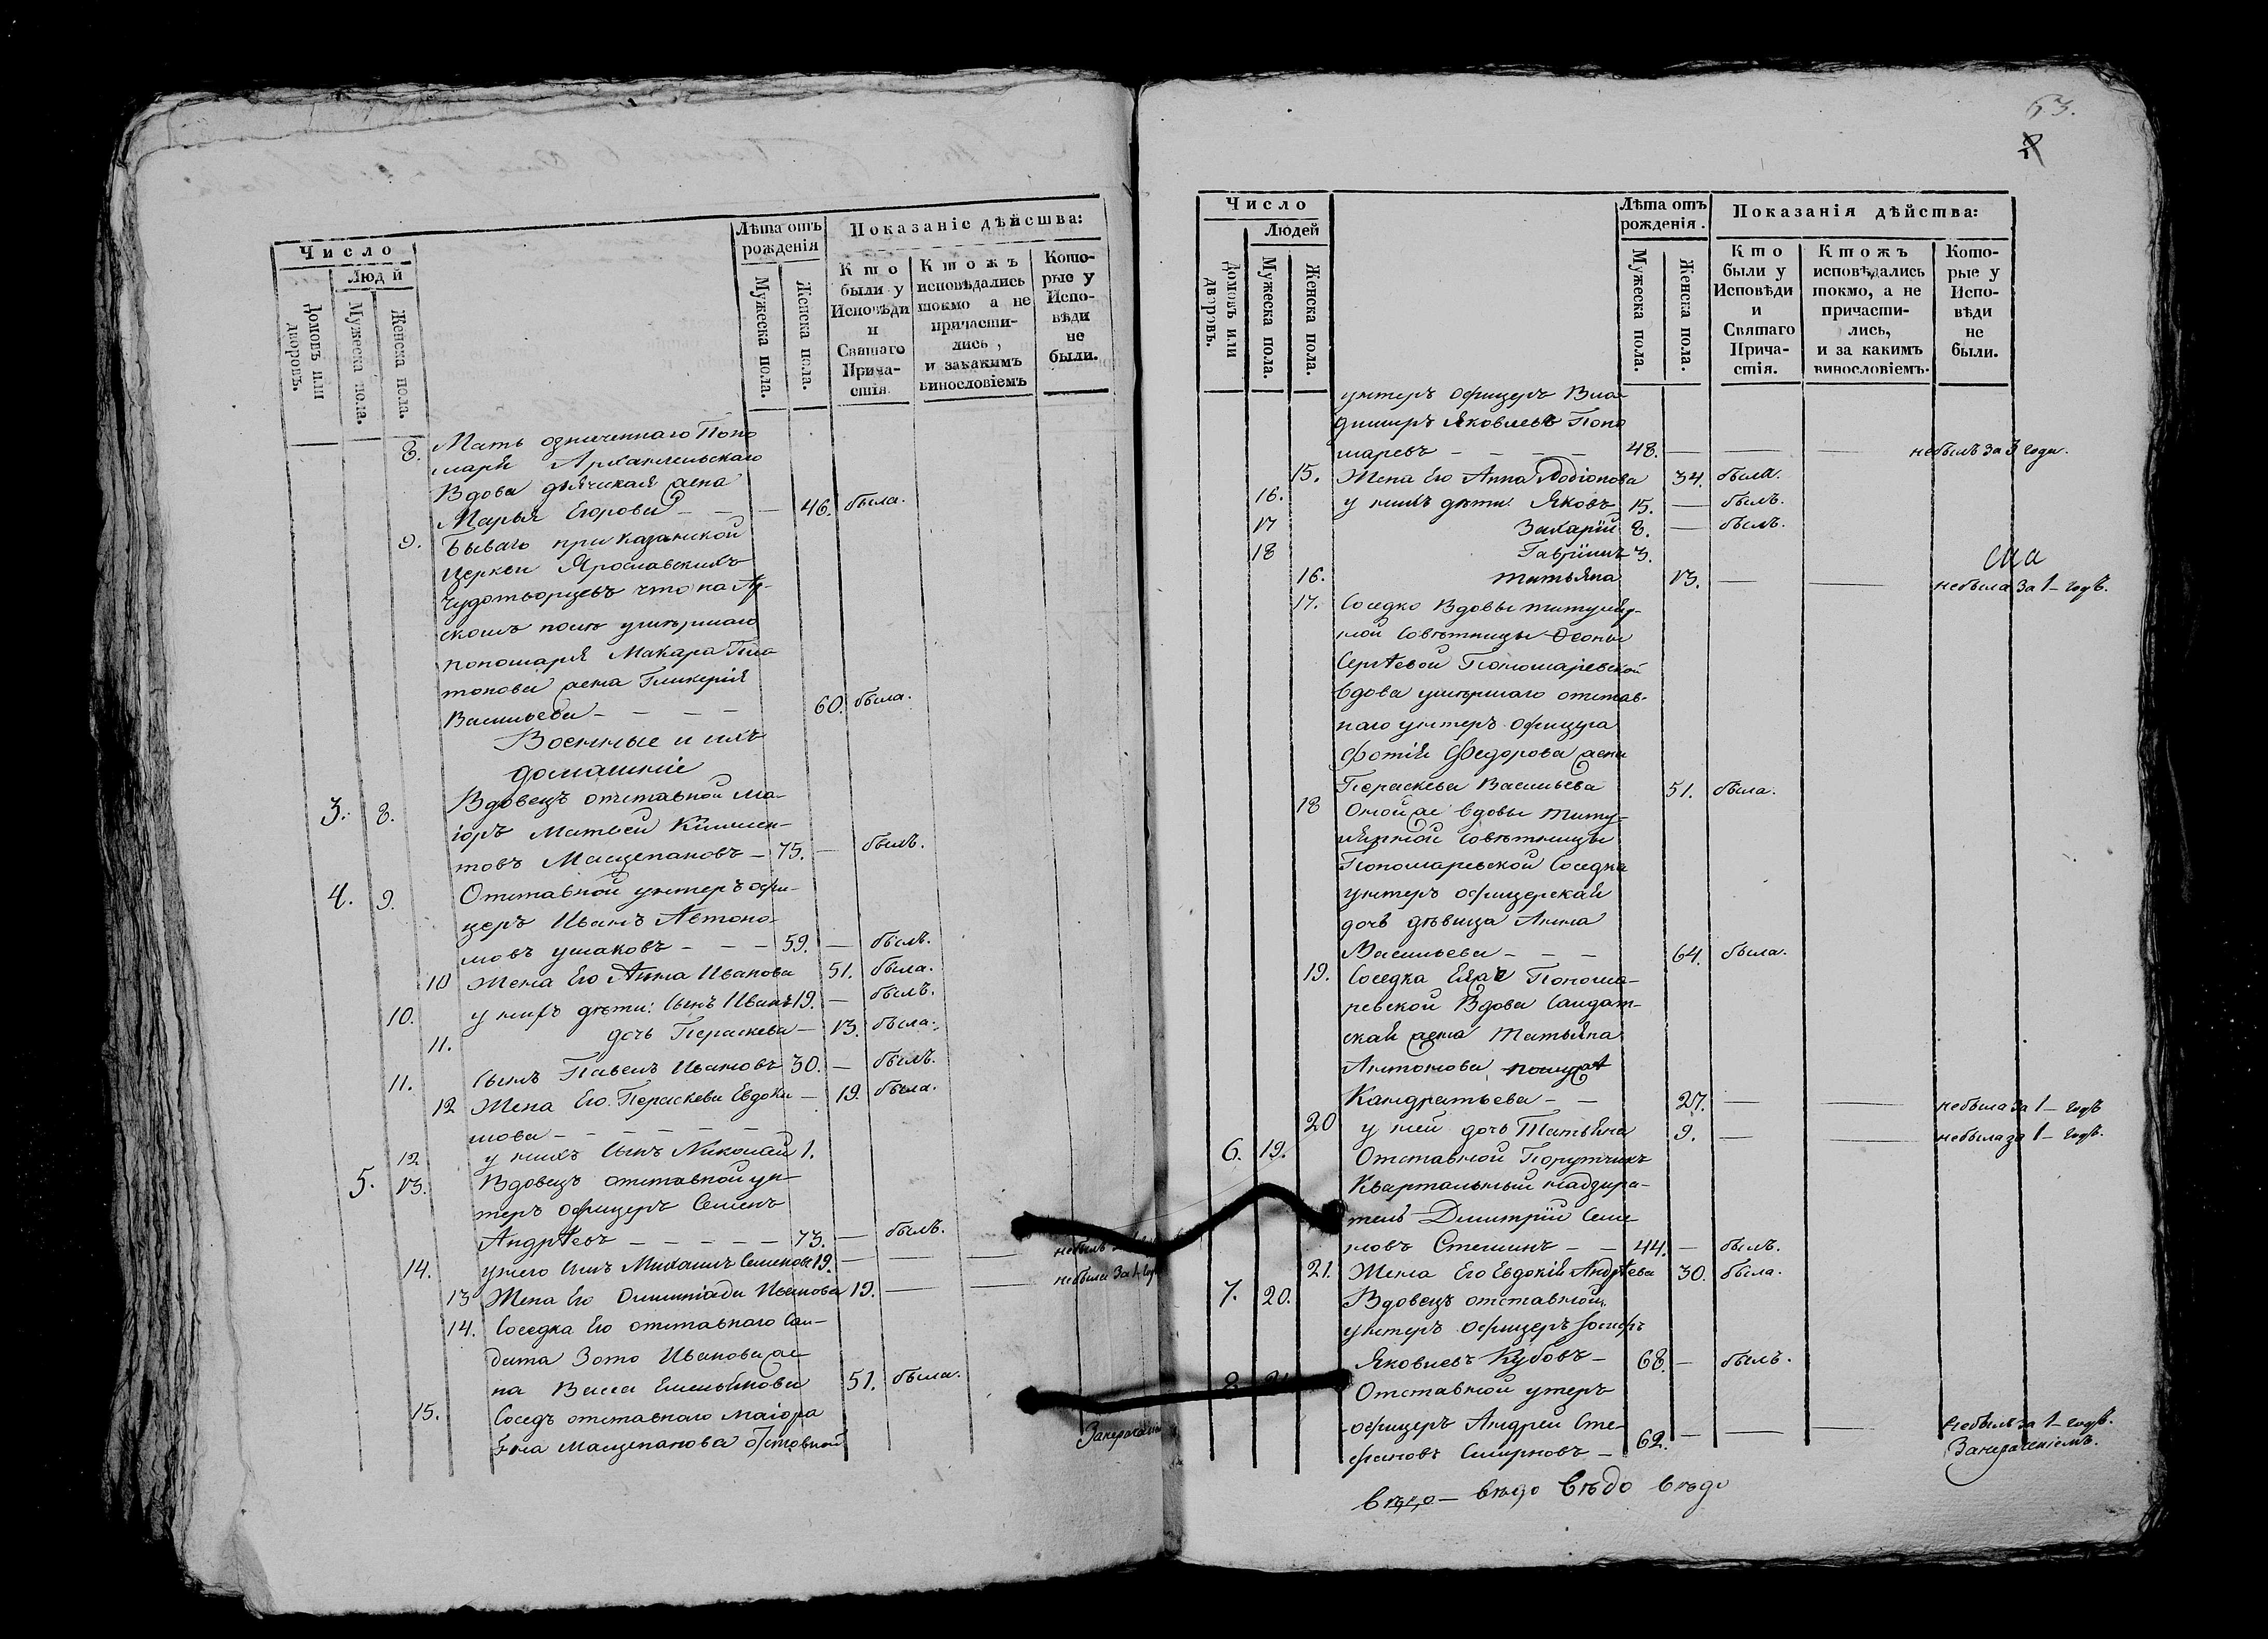 Число
Люд й
Домовъ или дворовъ.
Мужеска пола.
Женска пола.
Лѣта отъ рожденія
Мужеска пола.
Женска пола.
Показаніе дѣйства:
Кто были у Исповѣди и Святаго Прича-стія.
Кто жъ исповѣдались токмо а не причасти-лись, и за какимъ винословіемъ
Кото-рые у Испо-вѣди не были.
8. Мать означеннаго Поно
маря Архангельскаго
Вдова дьяческая жена
Марья Егорова — — — 46. была.
9. Бываго при Казанской
церкви Ярославскихъ
Чудотворцевъ что на Ар-
скомъ поле умершаго
пономаря Макара Пла
тонова жена Гликерія
Васильева — — — — 60. была.
Военные и ихъ
домашніе
3. 8. Вдовецъ отставной ма-
іоръ Матвей Климен-
товъ Мащепановъ — 75. — былъ.
4. 9. Отставной унтеръ офи-
церъ Иванъ Автоно-
мовъ ушаковъ — — — 59. — былъ.
10 Жена Его Анна Иванова 51. была.
10. у нихъ дѣти: Сынъ Иванъ 19. — былъ.
11. дочь Пераскева — 13. была.
11. Сынъ Павелъ Ивановъ 30. — былъ.
12 Жена Его Пераскева Евдоки — 19. была.
мова — — — — — —
12 у нихъ Сынъ Николай 1.
5. 13. Вдовецъ отставной ун-
теръ офицеръ Семенъ
Андрѣевъ — — — — — 73. — былъ.
14. унего Сынъ Михаилъ Семеновъ 19. — — — небылъ
13 Жена Его Олимпіада Иванова 19. — — небыла за 1
14. Соседка Его отставнаго Сал-
дата Зото Иванова же
на Васса Емельянова 51. была.
15. Соседъ отставнаго маіора
Мащепанова отставной
63.
Число
Людей
Домовъ или дворовъ.
Мужеска пола.
Женска пола.
Лѣта отъ рожденія.
Мужеска пола.
Женска пола.
Показанія дѣйства:
Кто были у Исповѣди и Святаго Прича-стія.
Кто жъ исповѣдались токмо, а не причасти-лись, и за какимъ винословіемъ.
Кото-рые у Испо-вѣди не были.
унтеръ офицеръ Вла
димиръ Яковлевъ Поно
маревъ — — — — 48. — — — небылъ за 3 года.
15. Жена Его Анна Родіонова 34. была.
16. у нихъ дѣти: Яковъ 15. — былъ.
17 Захарій 8. — былъ.
18 Гавріилъ 3.
16. татьяна 13. — — небыла за 1 — годъ.
17. Соседко Вдовы титуляр-
ной Совѣтницы
Сергѣевой Пономаревской
Вдова умершаго отстав-
наго унтеръ офицера
Фотія Федорова жена
Пераскева Васильева 51. была.
18 Оной же вдовы титу-
лярной Совѣтницы
Пономаревской Соседка
унтеръ офицерская
дочь дѣвица Анна
Васильева — — — 64. была.
19. Соседка Ея же Понома-
ревской Вдова Салдат-
ская жена Татьяна
Антонова
Кандратьева — — 27. — — небыла за 1 — годъ
20 у ней дочь Татьяна 9. — — небыла за 1 — годъ.
6. 19. Отставной Порутчикъ
Квартальный надзира-
тель Димитрій Семе
новъ Стешинъ — — 44. — былъ.
21. Жена Его Евдокія Андрѣева 30. была.
7. 20. Вдовецъ отставной
унтеръ офицеръ Іосифъ
Яковлевъ Кубовъ — 68. — былъ.
8. Отставной унтеръ
офицеръ Андрей Сте-
фановъ Смирновъ — 62. — — — небылъ за 1 — годъ.
Занераченіемъ.